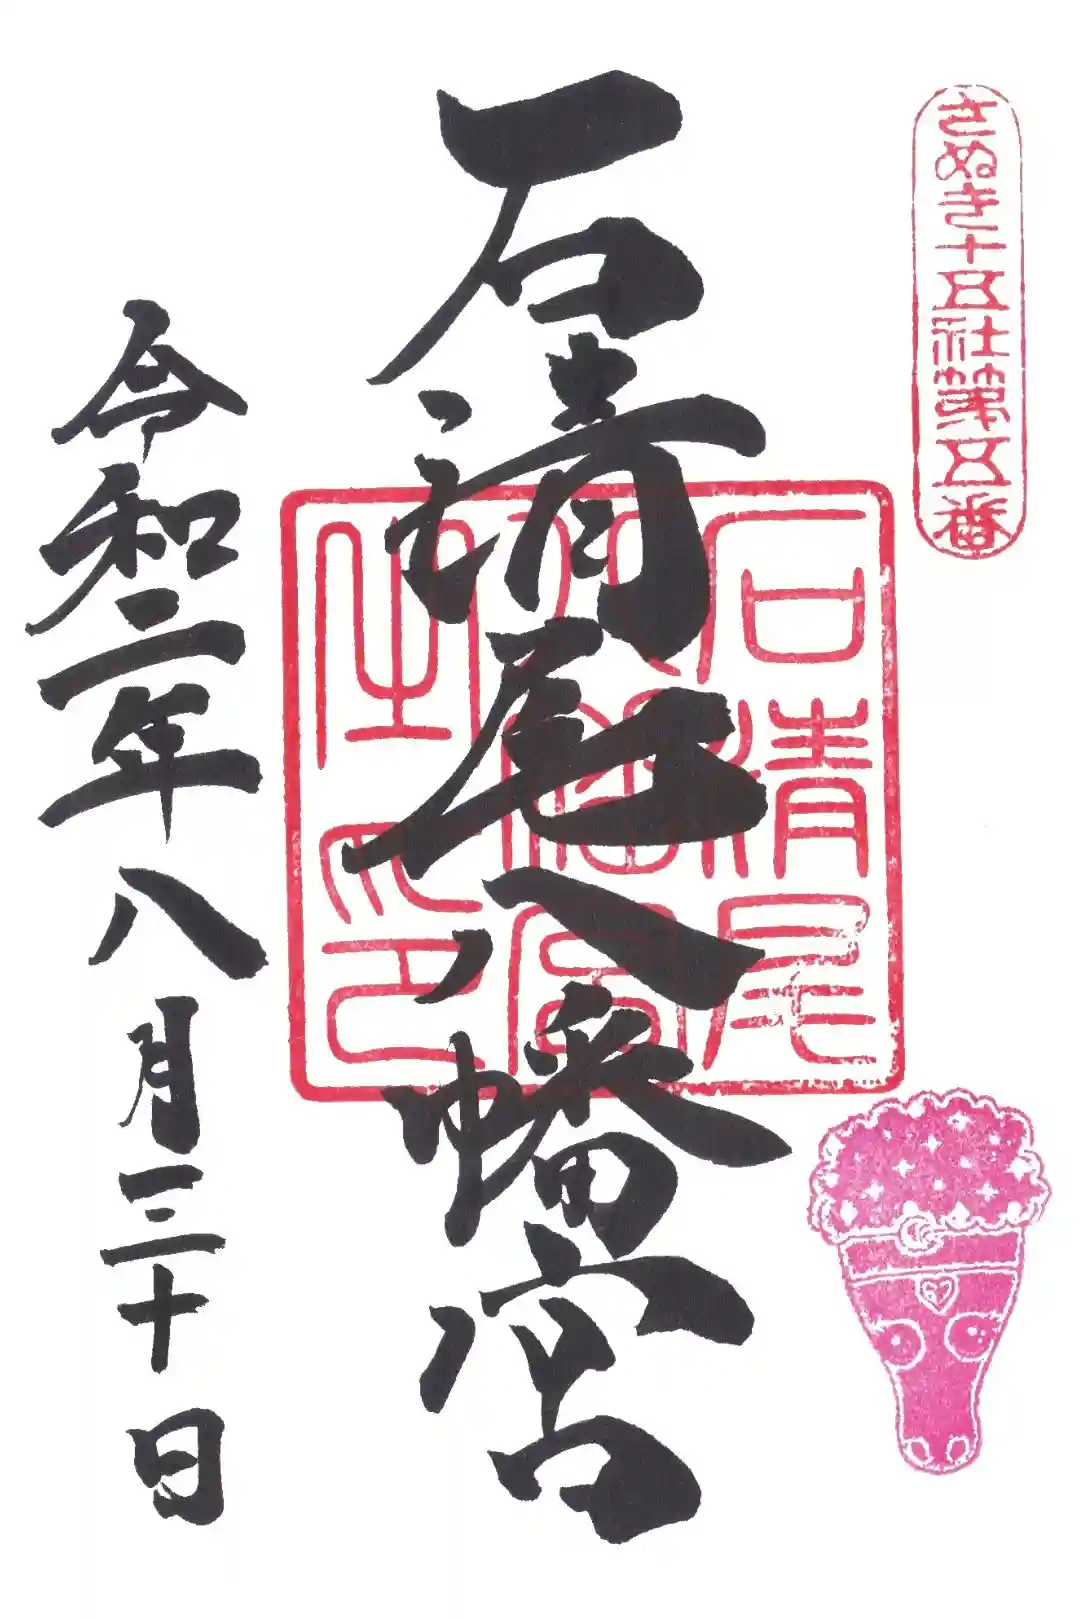 さぬき十五社第五番
石清尾八幡宮
石清尾
八幡宮
之印
令和二年八月三十日